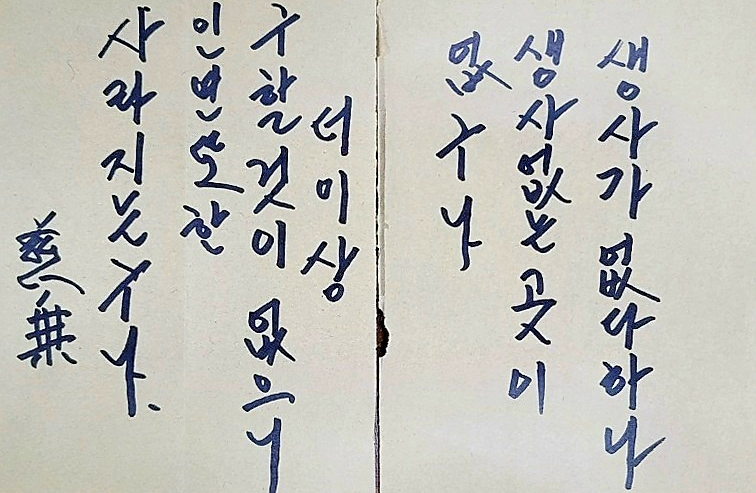 생사가 없다하나
생사없는 곳이
없구나
더이상
구할것이 없으니
인번또한
사라지는구나.
慈無